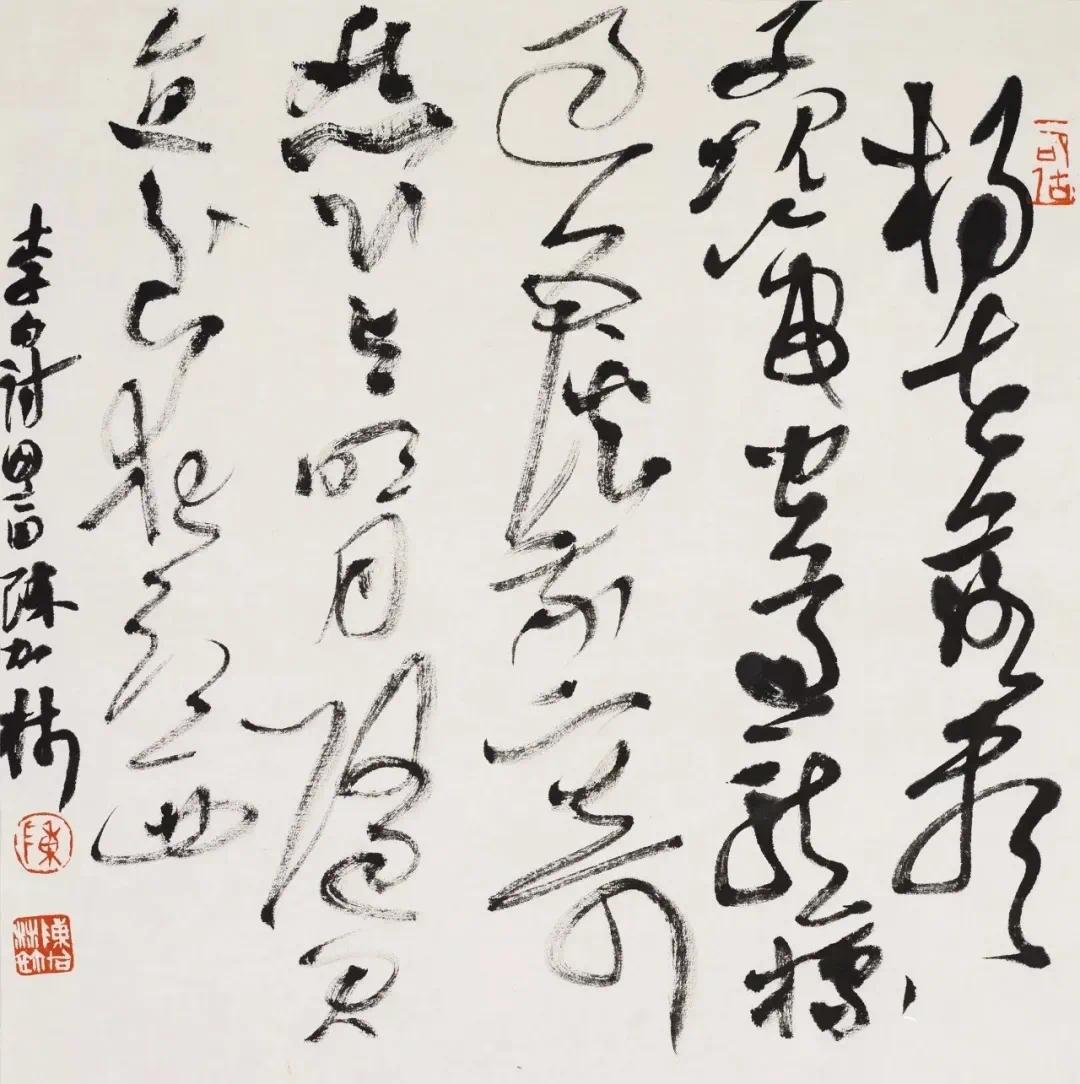 楊花落盡
子規啼聞道龍標
過五溪我寄
愁心与明月隨君
直到夜郎西
李白詩 陳加林
陳